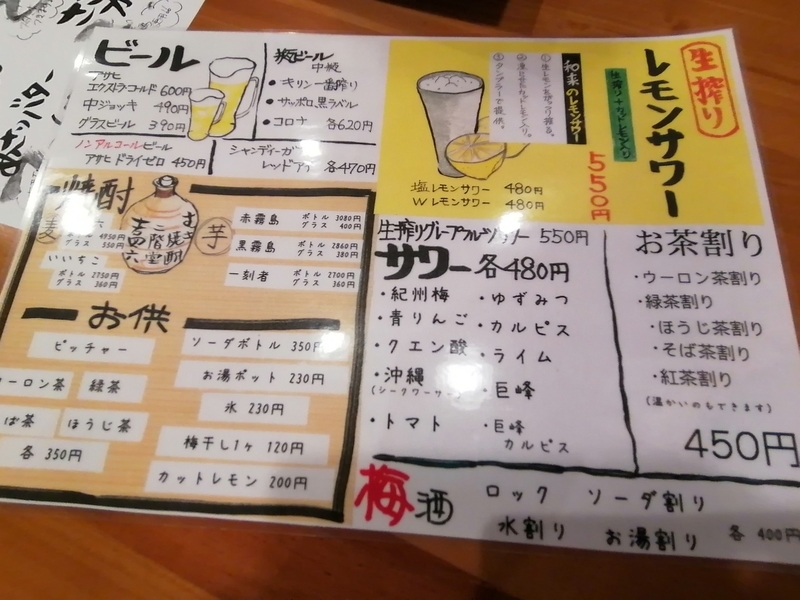 ビール
アサヒ
エクストラコールド 600円
中ジョッキ 490円
グラスビール 390円
瓶ビール
中瓶
・キリン一番搾り
・サッポロ黒ラベル
・コロナ 各620円
ノンアルコールビール
アサヒ ドライゼロ 450円
シャンディーガフ
レッドアイ 各470円
生搾り
レモンサワー
生搾り+カットレモン入り
550円
和楽のレモンサワー
塩レモンサワー 480円
Wレモンサワー 480円
焼酎
麦
ボトル 4950円
グラス 550円
いいちこ
ボトル 2750円
グラス 360円
むぎ焼酎
二階堂
吉四六
芋
赤霧島 ボトル 3080円
グラス 400円
黒霧島 ボトル 2860円
グラス 380円
一刻者 ボトル 2700円
グラス 360円
お供
ピッチャー
ウーロン茶
緑茶
そば茶
ほうじ茶
各 350円
ソーダボトル 350円
お湯ポット 230円
氷 230円
梅干し1ヶ 120円
カットレモン 200円
生搾りグレープフルーツサワー 550円
サワー各480円
・紀州梅
・青りんご
・クエン酸
・沖縄
(シークワーサー)
・トマト
・ゆずみつ
・カルピス
・ライム
・巨峰
・巨峰
カルピス
お茶割り
・ウーロン茶割り
・緑茶割り
・ほうじ茶割り
・そば茶割り
・紅茶割り
(温かいのもできます)
450円
梅酒
ロック
ソーダ割り
水割り
お湯割り
各 400円